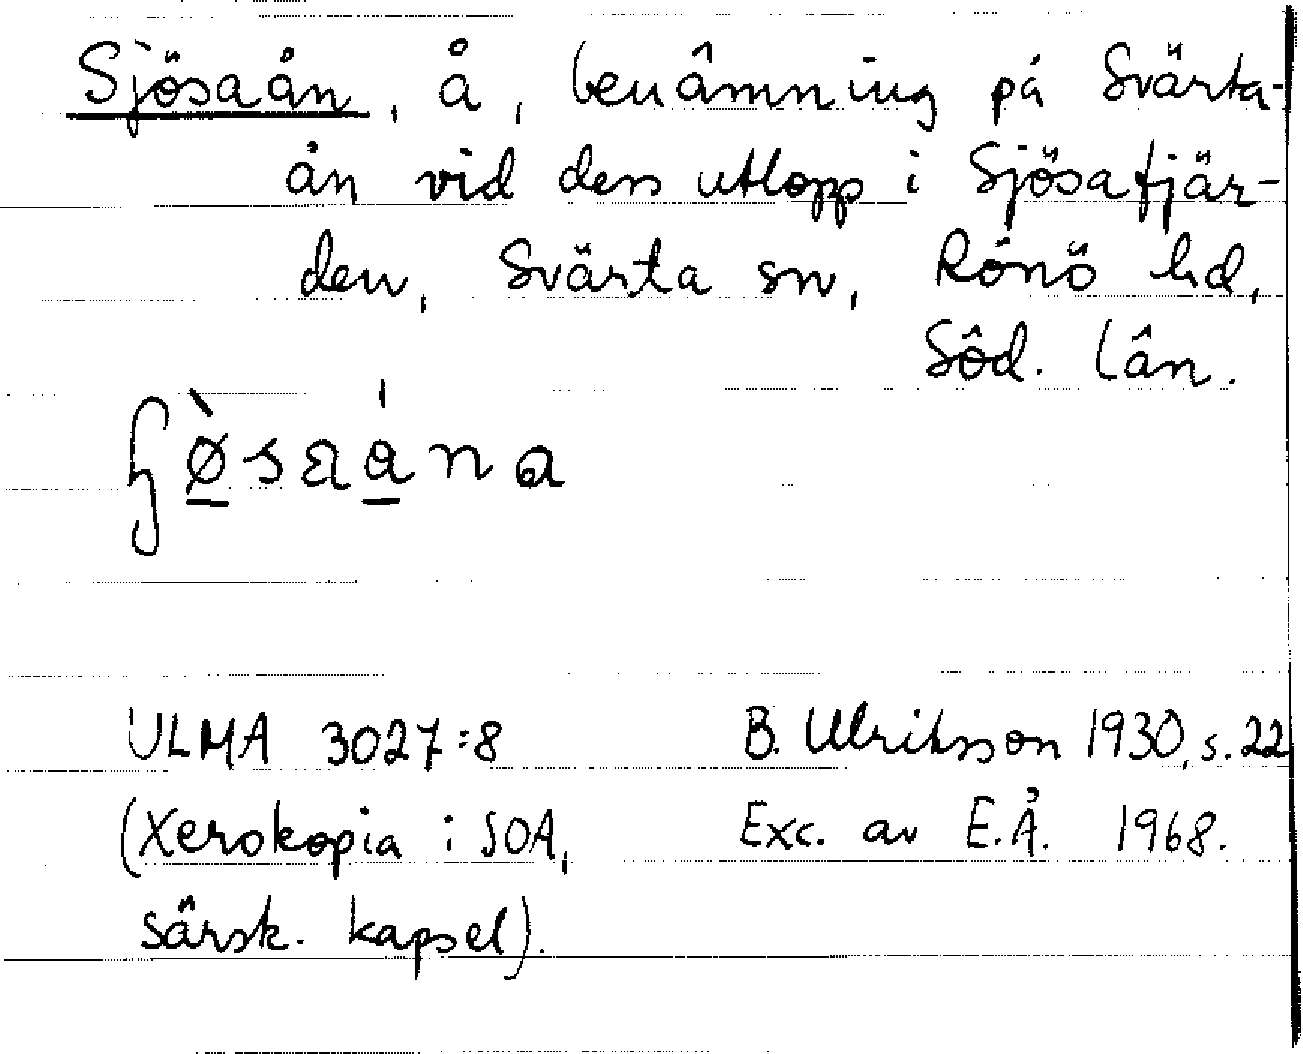 Sjösaån, å, benämning på Svärta-
ån vid dess utlopp i Sjösafjär-
den, Svärta sn, Rönö hd,
Söd. län.
ULMA 3027:8 B. Ulriksson 1930, s. 22
(Xerokopia i SOA, Exc. av E.Å. 1968.
särsk. kapsel).